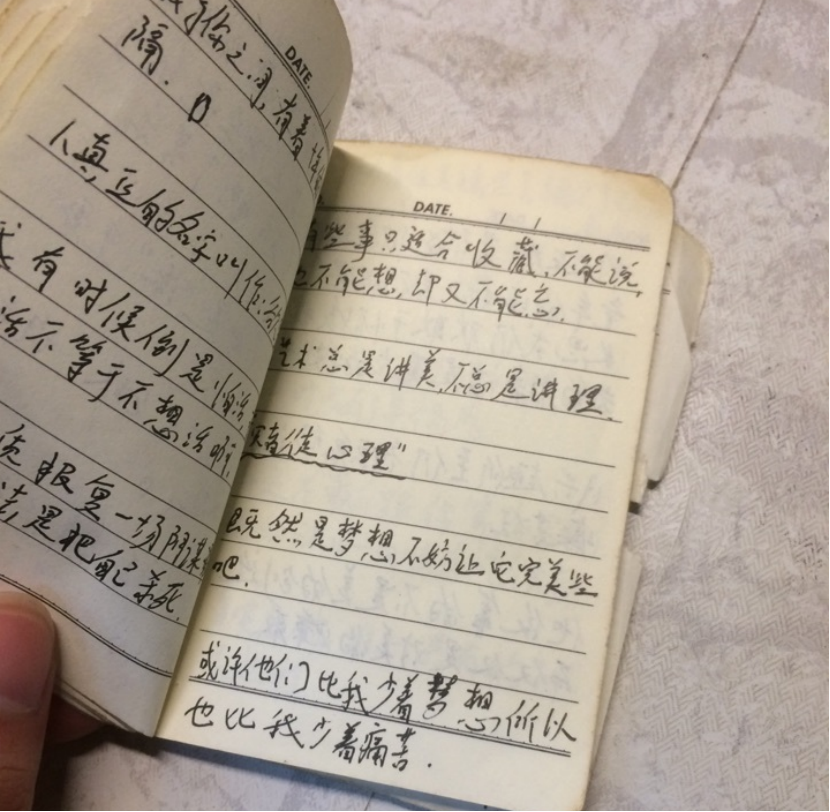 伤之间,有着
隔.
DATE.
人真正的名字叫作
我有时候倒是怕活
活不等于不想活啊.
报复一场阴谋
是把自己杀死.
DATE. / /
有些事只适合收藏,不能说,
也不能想,却又不能忘.
艺术总是讲美,不总是讲理.
赌徒心理"
既然是梦想不妨让它完美些
吧.
或许他们比我少着梦想,所以
也比我少着痛苦.